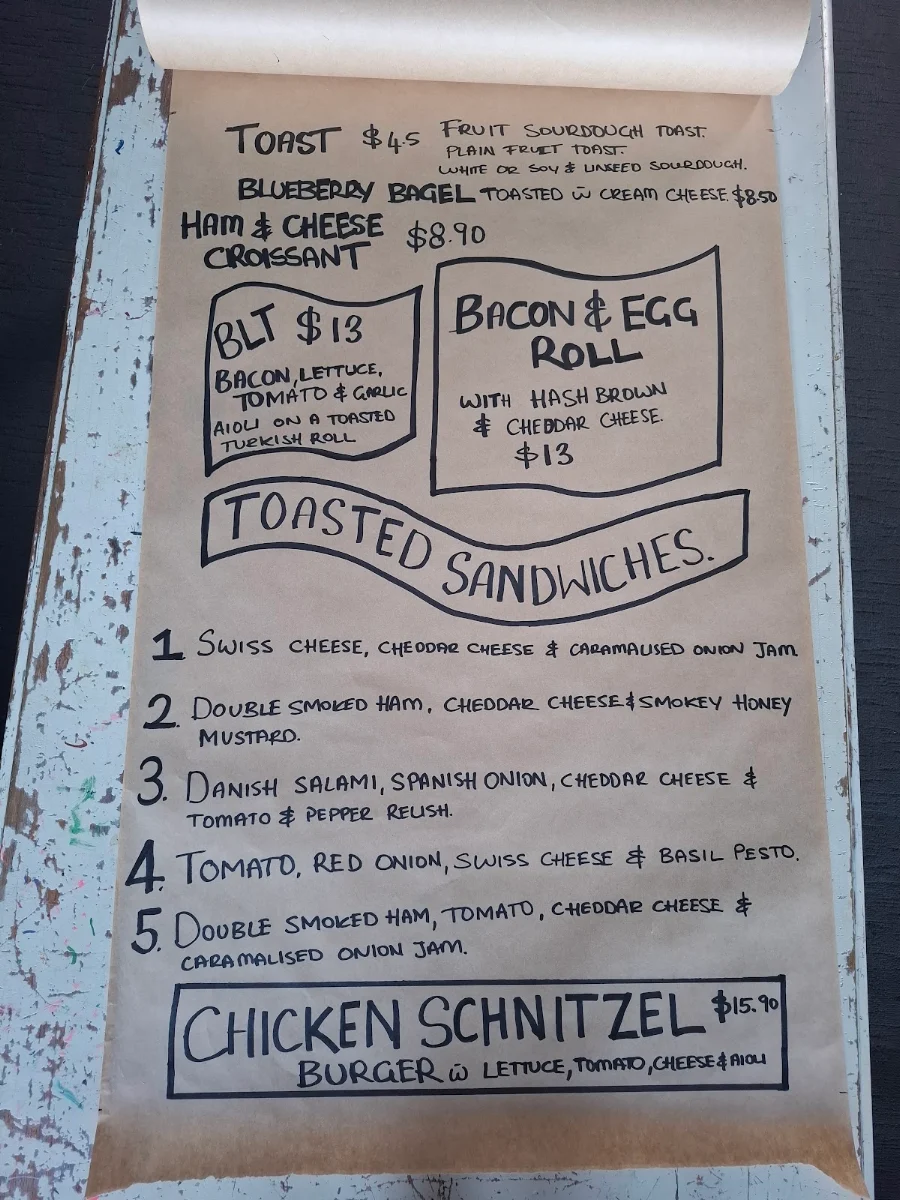 TOAST $4.5 FRUIT SOURDOUGH TOAST.
PLAIN FRUIT TOAST.
WHITE OR SOY & LINSEED SOURDOUGH.
BLUEBERRY BAGEL TOASTED W̄ CREAM CHEESE. $8.50
HAM & CHEESE
CROISSANT $8.90
BLT $13
BACON, LETTUCE,
TOMATO & GARLIC
AIOLI ON A TOASTED
TURKISH ROLL
BACON & EGG
ROLL
WITH HASH BROWN
& CHEDDAR CHEESE.
$13
TOASTED SANDWICHES.
1 SWISS CHEESE, CHEDDAR CHEESE & CARAMALISED ONION JAM
2. DOUBLE SMOKED HAM, CHEDDAR CHEESE & SMOKEY HONEY
MUSTARD.
3. DANISH SALAMI, SPANISH ONION, CHEDDAR CHEESE &
TOMATO & PEPPER RELISH.
4. TOMATO, RED ONION, SWISS CHEESE & BASIL PESTO.
5. DOUBLE SMOKED HAM, TOMATO, CHEDDAR CHEESE &
CARAMALISED ONION JAM.
CHICKEN SCHNITZEL $15.90
BURGER W̄ LETTUCE, TOMATO, CHEESE & AIOLI